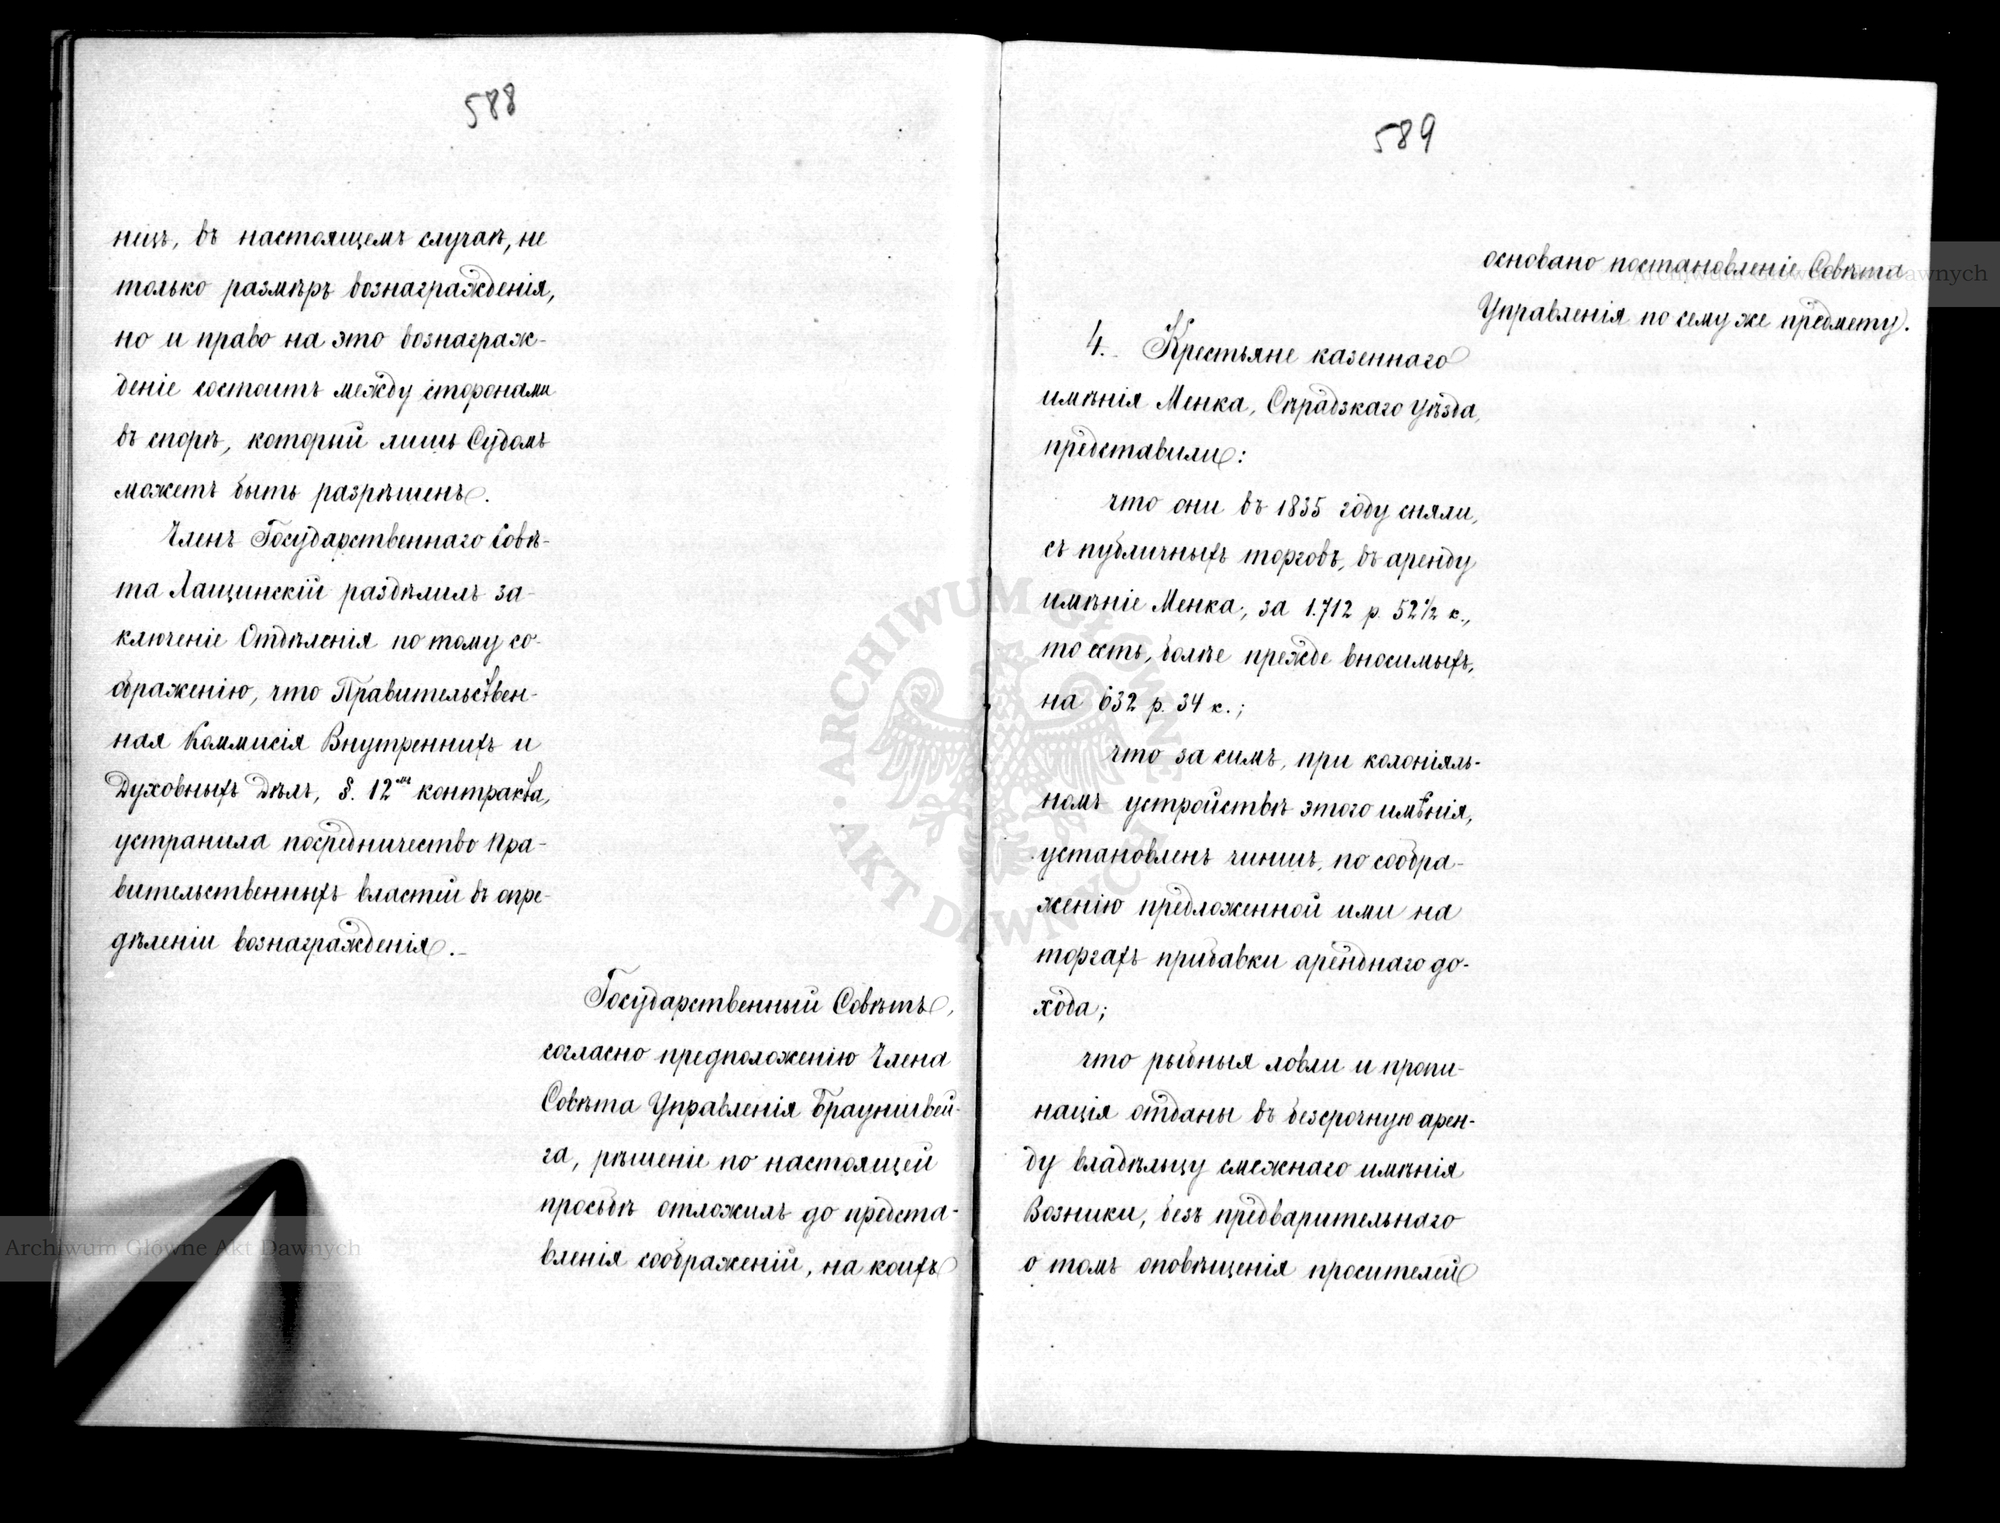 588
ницъ, въ настоящемъ случаѣ, не
только размѣръ вознагражденія,
но и право на это вознаграж-
деніе состоитъ между сторонами
въ спорѣ, который лишь Судомъ
можетъ быть разрѣшенъ.
Членъ Государственнаго Совѣ-
та Лащинскій раздѣлилъ за-
ключеніе Отдѣленія по тому со-
ображенію, что Правительствен-
ная Коммисія Внутреннихъ и
Духовныхъ Дѣлъ, §. 12мъ контракта,
устранила посредничество Пра-
вительственныхъ властей въ опре-
дѣленіи вознагражденія.
Государственный Совѣтъ,
согласно предположенію Члена
Совѣта Управленія Брауншвей-
га, рѣшеніе по настоящей
просьбѣ отложилъ до предста-
вленія соображеній, на коихъ
589
основано постановленіе Совѣта
Управленія по сему же предмету.
4. Крестьяне казеннаго
имѣнія Менка, Сѣрадзкаго Уѣзда,
представили:
что они въ 1835 году сняли,
съ публичныхъ торговъ, въ аренду
имѣніе Менка, за 1.712 р. 52½ к.,
то есть, болѣе прежде вносимыхъ,
на 632 р. 34 к.;
что за симъ, при колоніяль-
номъ устройствѣ этого имѣнія,
установленъ чиншъ, по сообра-
женію предложенной ими на
торгахъ прибавки аренднаго до-
хода;
что рыбныя ловли и пропи-
нація отданы въ безсрочную арен-
ду владѣльцу смежнаго имѣнія
Возники, безъ предварительнаго
о томъ оповѣщенія просителей
Archiwum Główne Akt Dawnych
Archiwum Główne Akt Dawnych
ARCHIWUM GŁÓWNE AKT DAWNYCH